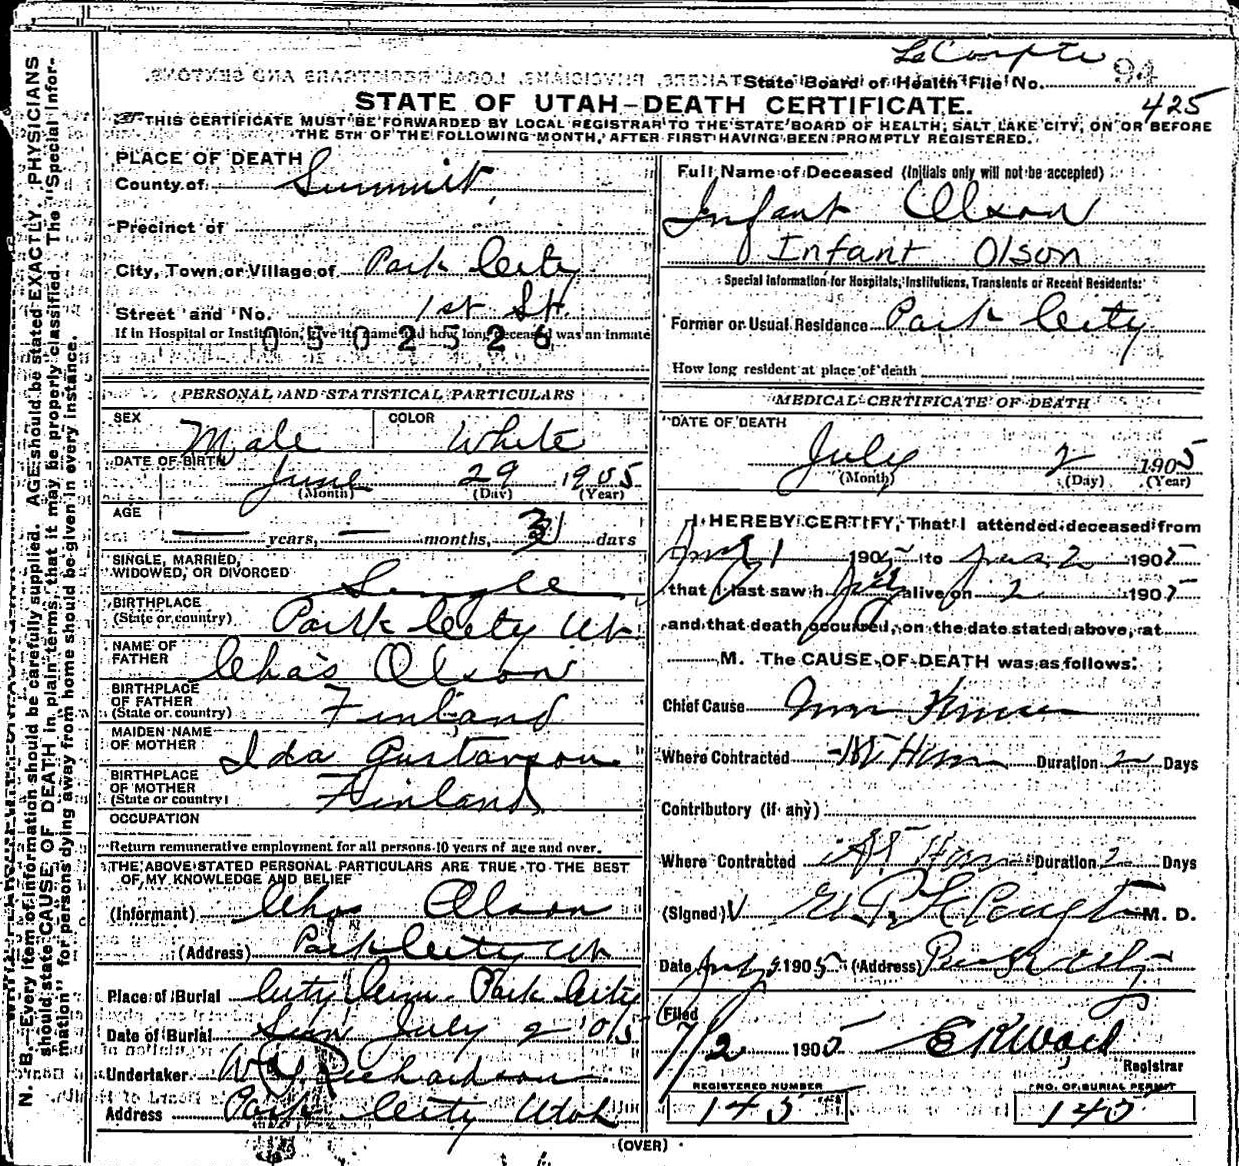 LeCompte 94
State Board of Health File No.
425
STATE OF UTAH-DEATH CERTIFICATE.
THIS CERTIFICATE MUST BE FORWARDED BY LOCAL REGISTRAR TO THE STATE BOARD OF HEALTH, SALT LAKE CITY, ON OR BEFORE
THE 5TH OF THE FOLLOWING MONTH, AFTER FIRST HAVING BEEN PROMPTLY REGISTERED.
PLACE OF DEATH
County of Summit,
Precinct of
City, Town or Village of Park City
Street and No. 1st St.
If in Hospital or Institution, give its name and how long deceased was an inmate
0502526
PERSONAL AND STATISTICAL PARTICULARS
SEX Male COLOR White
DATE OF BIRTH June 29 1905
(Month) (Day) (Year)
AGE
— years, — months, 3 days
SINGLE, MARRIED,
WIDOWED, OR DIVORCED Single
BIRTHPLACE
(State or country) Park City Ut
NAME OF
FATHER Chas Olson
BIRTHPLACE
OF FATHER
(State or country) Finland
MAIDEN NAME
OF MOTHER Ida Gustavson
BIRTHPLACE
OF MOTHER
(State or country) Finland
OCCUPATION
Return remunerative employment for all persons 10 years of age and over.
THE ABOVE STATED PERSONAL PARTICULARS ARE TRUE TO THE BEST
OF MY KNOWLEDGE AND BELIEF
(Informant) Chas Olson
(Address) Park City Ut
Place of Burial City Cem. Park City
Date of Burial Sun July 2 '05
Undertaker Richardson
Address Park City Utah
Full Name of Deceased (Initials only will not be accepted)
Infant Olson
Infant Olson
Special Information for Hospitals, Institutions, Transients or Recent Residents:
Former or Usual Residence Park City
How long resident at place of death
MEDICAL CERTIFICATE OF DEATH
DATE OF DEATH
July 2 1905
(Month) (Day) (Year)
I HEREBY CERTIFY, That I attended deceased from
July 1 1905 to 2 1905
that I last saw h alive on 2 1905
and that death occurred, on the date stated above, at
M. The CAUSE OF DEATH was as follows:
Chief Cause
Where Contracted At Home Duration 2 Days
Contributory (if any)
Where Contracted At Home Duration 2 Days
(Signed) E. P. LeCompte M. D.
Date July 2 1905 (Address) Park City
Filed
7/2 1905
Registrar
REGISTERED NUMBER
145
NO. OF BURIAL PERMIT
145
(OVER)
N. B.—Every item of information should be carefully supplied. AGE should be stated EXACTLY. PHYSICIANS
should state CAUSE OF DEATH in plain terms, that it may be properly classified. The "Special Infor-
mation" for persons dying away from home should be given in every instance.